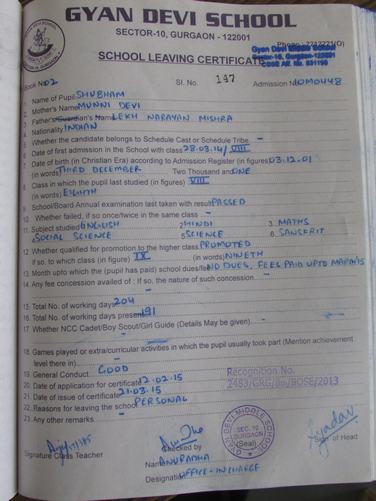 GYAN DEVI SCHOOL
SECTOR-10, GURGAON - 122001
Gyan Devi Middle School
SCHOOL LEAVING CERTIFICATE
Sector-10, Gurgaon-122001
Book No02 Sl. No. 147 Admission No. 0M0448
1. Name of Pupil SHUBHAM
2. Mother's Name MUNNI DEVI
3. Father's/Guardian's Name LEKH NARAYAN MISHRA
4. Nationality INDIAN
5. Whether the candidate belongs to Schedule Cast or Schedule Tribe -
6. Date of first admission in the School with class 28.03.14/VIII
7. Date of birth (in Christian Era) according to Admission Register (in figures) 03.12.01
(in words) THIRD DECEMBER Two Thousand and ONE
8. Class in which the pupil last studied (in figures) VIII
(in words) EIGHTH
9. School/Board Annual examination last taken with result PASSED
10. Whether failed, if so once/twice in the same class -
11. Subject studied 1. ENGLISH 2. HINDI 3. MATHS
4. SOCIAL SCIENCE 5. SCIENCE 6. SANSKRIT
12. Whether qualified for promotion to the higher class PROMOTED
If so, to which class (in figure) IX (in words) NINETH
13. Month upto which (the pupil has paid) school dues/fee NO DUES, FEES PAID UPTO MAR 2015
14. Any fee concession availed of : If so, the nature of such concession. -
15. Total No. of working days 204
16. Total No. of working days present 191
17. Whether NCC Cadet/Boy Scout/Girl Guide (Details May be given) -
18. Games played or extra/curricular activities in which the pupil usually took part (Mention achievement
level there in) -
19. General Conduct GOOD
Recognition No.
20. Date of application for certificate 12.02.15
2483/GRG/Bo/HOSE/2013
21. Date of issue of certificate 21.03.15
22. Reasons for leaving the school PERSONAL
23. Any other remarks -
GYAN DEVI MIDDLE SCHOOL
SEC. 10
GURGAON
(Seal)
Signature Class Teacher
Checked by
Sign of Head
Name ANURADHA
Designation OFFICE-INCHARGE